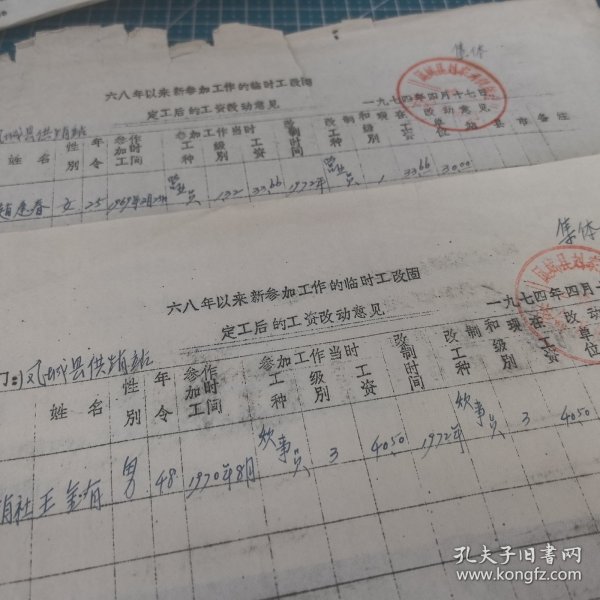 集体
六八年以来新参加工作的临时工改固
定工后的工资改动意见
一九七四年四月十七日
凤城县供销
姓名 性别 年令 参加工作时间 参加工作当时 工种 级别 工资 改制时间 改制和现在 工种 级别 工资 改动意见 单位 县 市 备注
春 女 25 1969年 营业员 132 33.66 1972年 营业员 1 33.66 30.00
集体
六八年以来新参加工作的临时工改固
定工后的工资改动意见
一九七四年四月
门:凤城县供销
姓名 性别 年令 参加工作时间 参加工作当时 工种 级别 工资 改制时间 改制和现在 工种 级别 工资 改动 单位
销社 王金有 男 48 1970年8月 炊事员 3 40.50 1972年 炊事员 3 40.50
孔夫子旧书网
www.kongfz.com